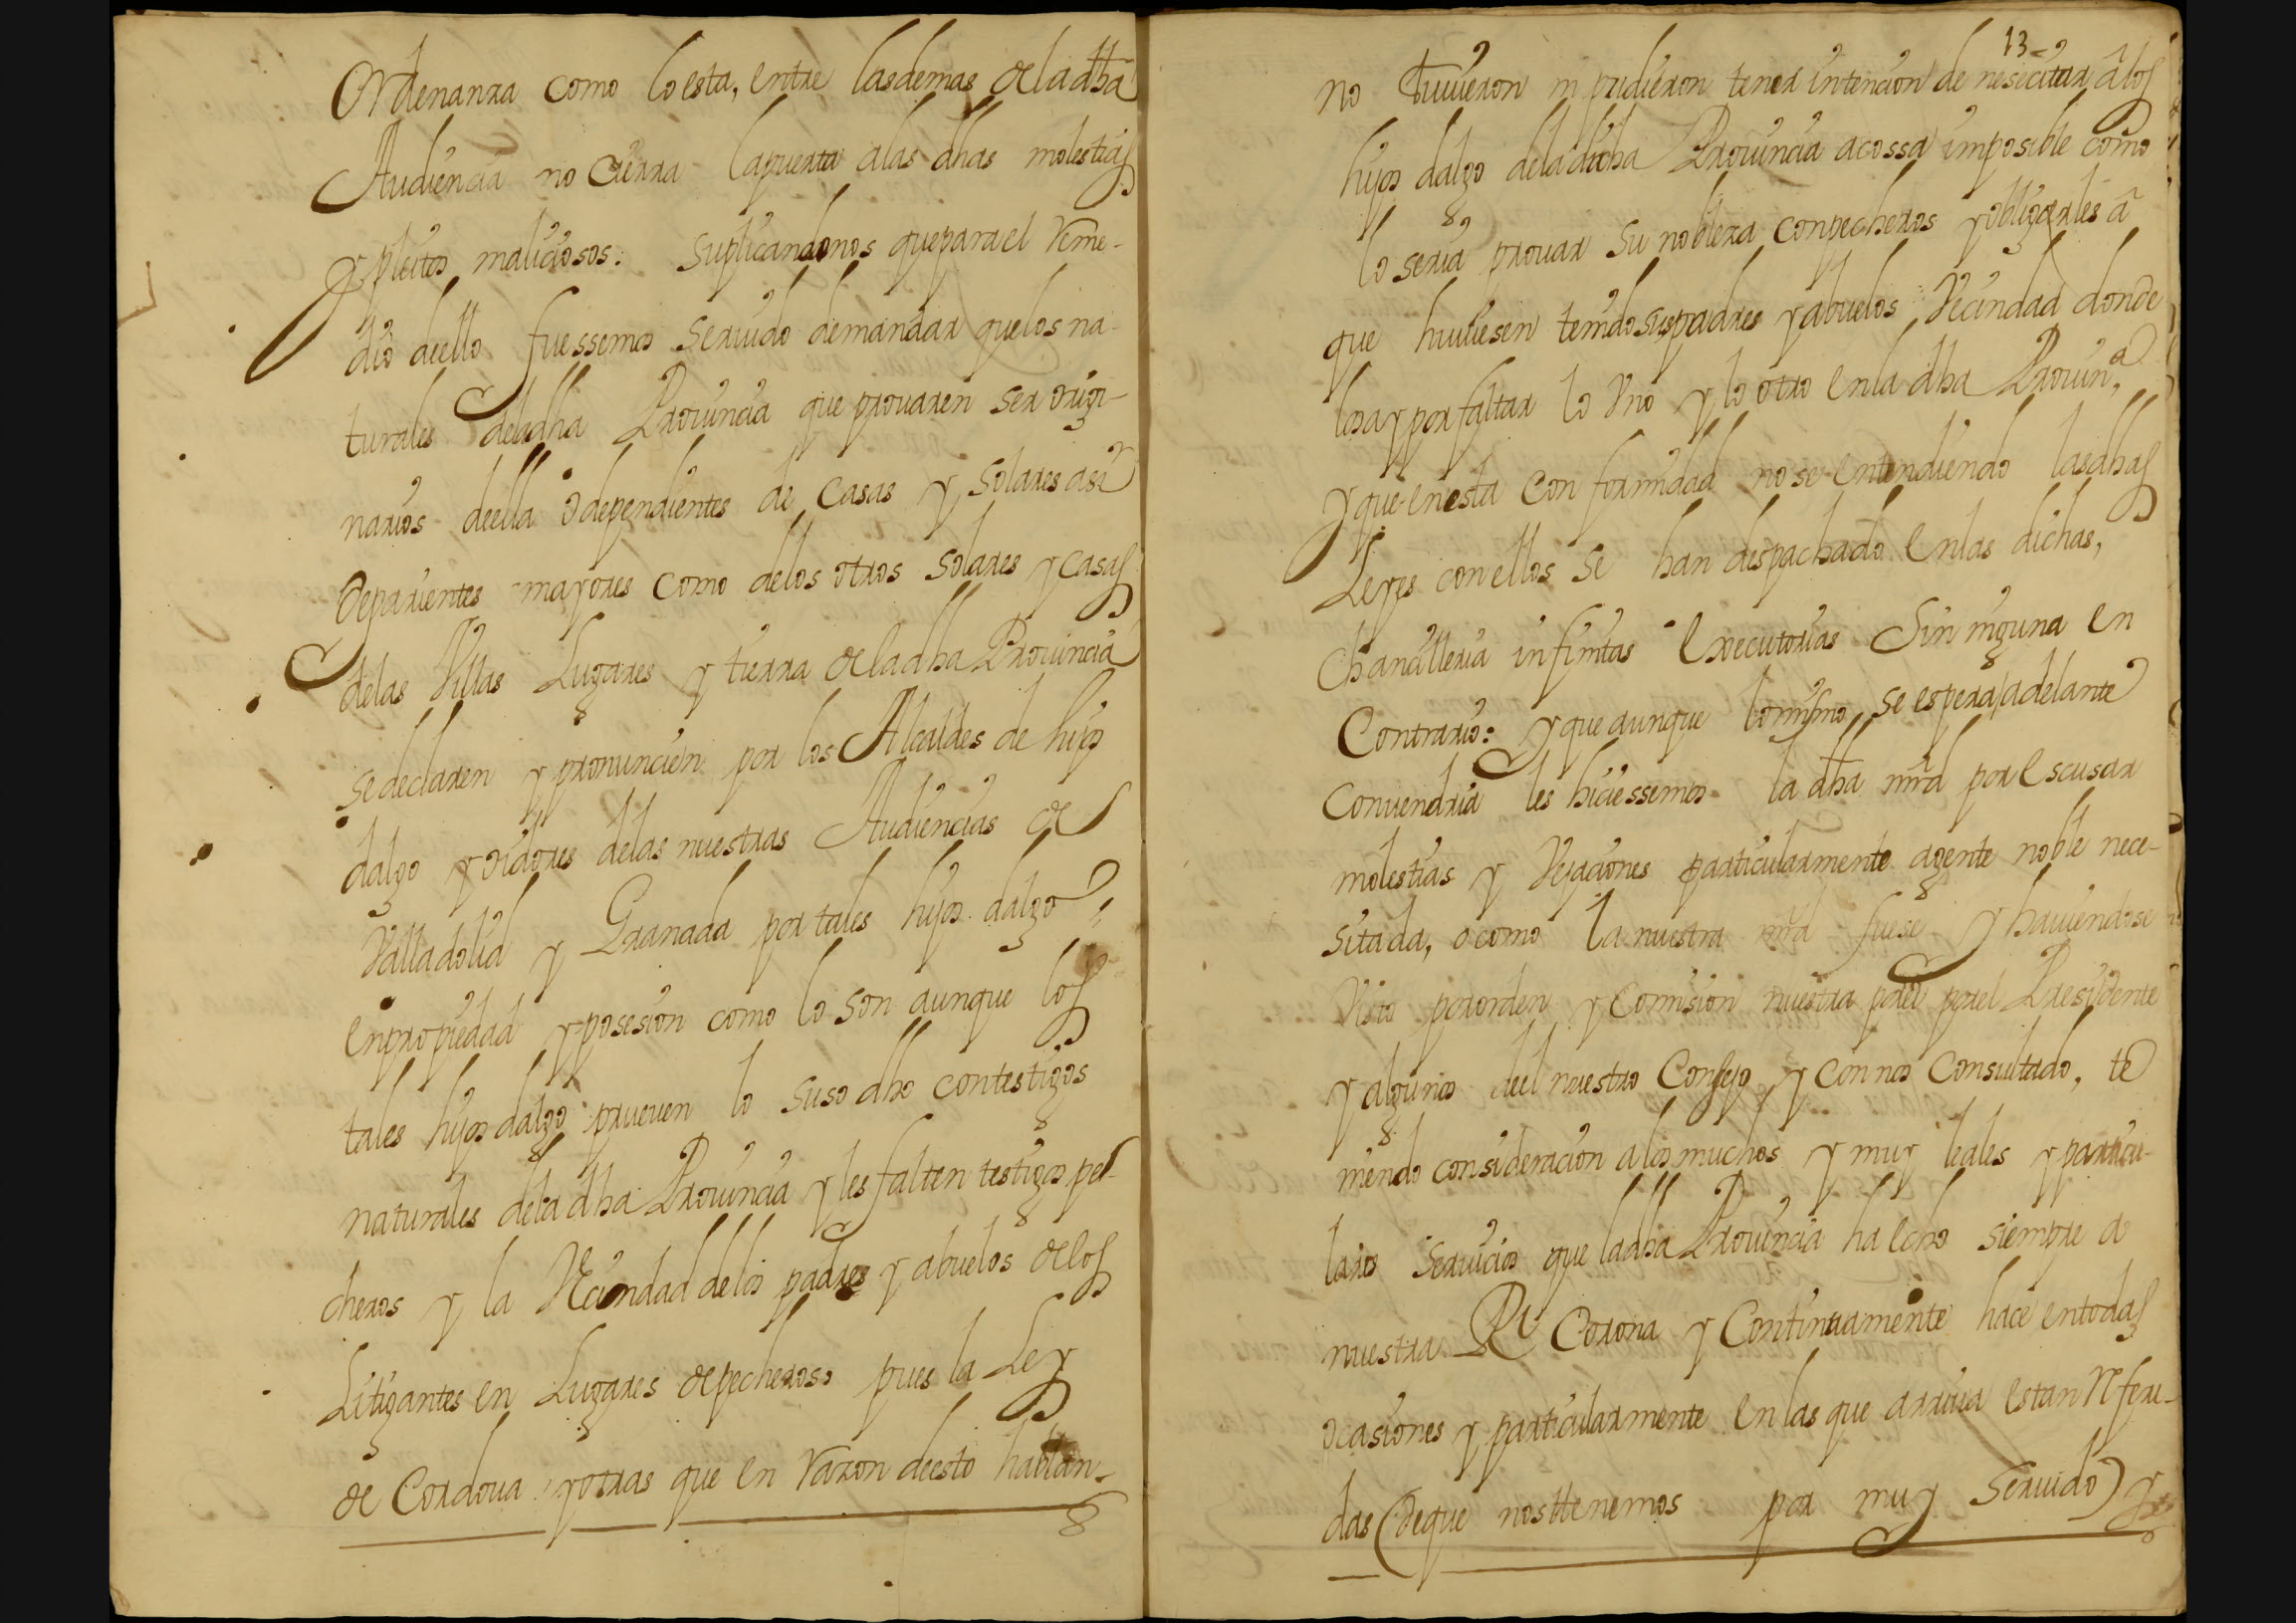 Ordenanza como lo esta, entre las demas de la dha
Audiencia no cierra la puerta a las dhas molestias
y pleitos maliciosos: suplicandonos que para el reme-
dio dello fuessemos seruido de mandar que los na-
turales de la dha Prouincia que prouaren ser origi-
narios deella o dependientes de casas y solares asi
de parientes mayores como de los otros solares y casas
de las Villas Lugares y tierra de la dha Prouincia
se declaren y pronuncien por los Alcaldes de hijos
dalgo y oidores de las nuestras Audiencias de
Valladolid y Granada por tales hijos dalgo
en propiedad y posesion como lo son aunque los
tales hijos dalgo prueuen lo suso dho con testigos
naturales de la dha Prouincia y les falten testigos pe-
cheros y la Vecindad de los padres y abuelos de los
Litigantes en Lugares de pecheros: pues la Ley
de Cordoua y otras que en razon deesto hablan
13
no tuuieron ni pudieron tener intencion de nesecitar â los
hijos dalgo de la dicha Prouincia a cossa imposible como
lo seria prouar su nobleza con pecheros y obligarles â
que huuiesen tenido sus padres y abuelos Vecindad donde
los ay por faltar lo vno y lo otro en la dha Prouinª
y que en esta conformidad no se entendiendo las dhas
Leyes con ellos se han despachado en las dichas,
Chancilleria infinitas executorias sin ninguna en
Contrario: y que aunque lo mismo se espera adelante
Conuendria les hiciessemos la dha mrd por escusar
molestias y Vejaciones particularmente a gente noble nece-
sitada, o como la nuestra mrd fuese y hauiendose
Visto por orden y Comision nuestra por el Presidente
y algunos del nuestro Consejo y con nos Consultado, te
niendo consideracion a los muchos y muy leales y particu-
lares seruicios que la dha Prouincia ha echo siempre a
nuestra Rl Corona y Continuamente hace en todas
ocasiones y particularmente en las que arriua estan referi-
das (de que nos ttenemos por muy seruido) y